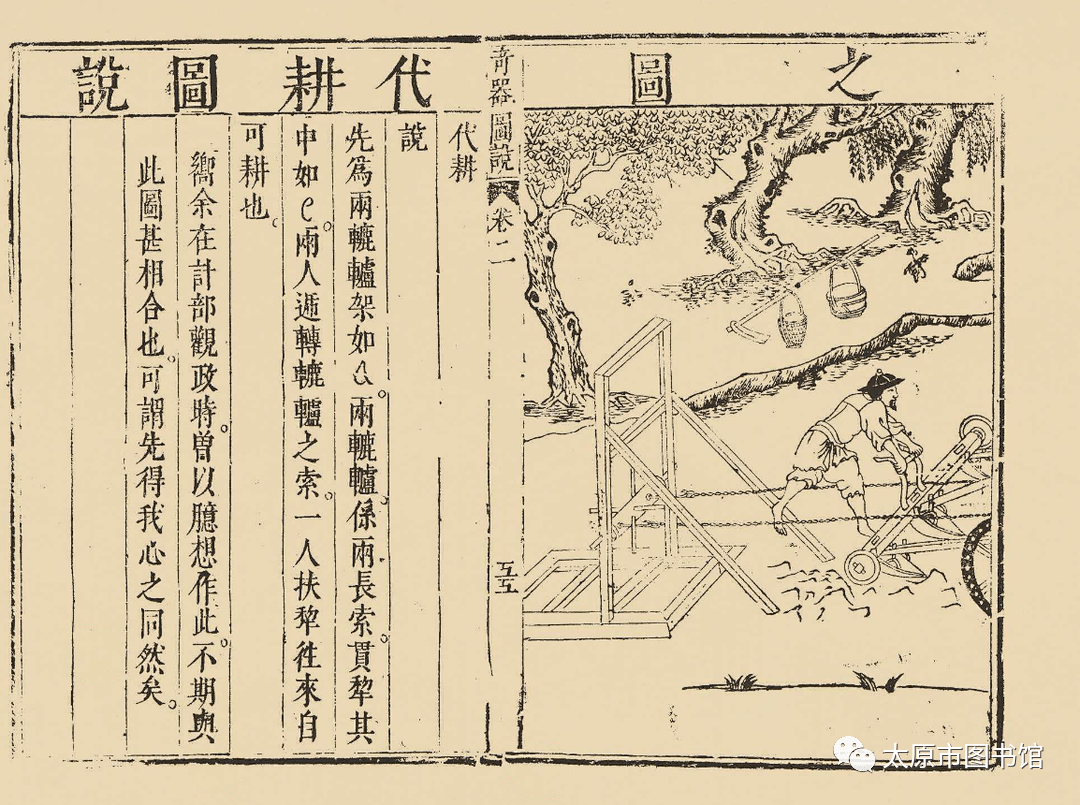 之圖
奇器圖說
卷二
五五
代耕圖說
代耕
說
先爲兩轆轤架如。兩轆轤。係兩長索。貫犂其
中如。兩人遞轉轆轤之索。一人扶犂徃來自
可耕也。
嚮余在計部觀政時。曾以臆想作此。不期與
此圖甚相合也。可謂先得我心之同然矣。
太原市图书馆